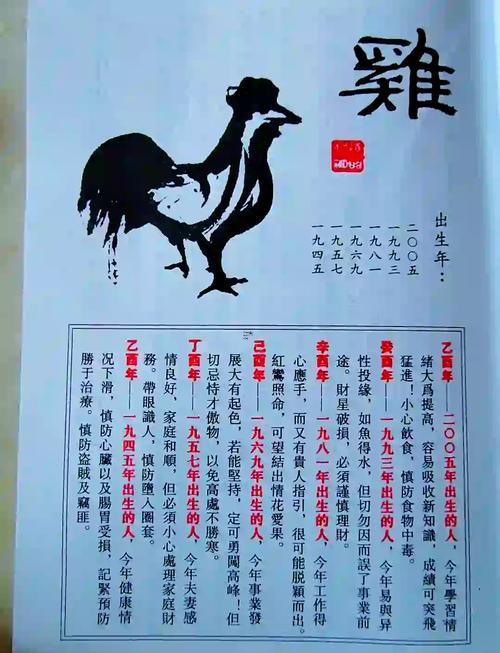 雞
出生年：
二〇〇五
一九九三
一九八一
一九六九
一九五七
一九四五
乙酉年——二〇〇五年出生的人，今年學習情
緒大爲提高，容易吸收新知識，成績可突飛
猛進！小心飲食，慎防食物中毒。
癸酉年——一九九三年出生的人，今年易與异
性投緣，如魚得水，但切勿因而誤了事業前
途。財星破損，必須謹慎理財。
辛酉年——一九八一年出生的人，今年工作得
心應手，而又有貴人指引，很可能脫穎而出。
紅鸞照命，可望結出情花愛果。
己酉年——一九六九年出生的人，今年事業發
展大有起色，若能堅持，定可勇闖高峰！但
切忌恃才傲物，以免高處不勝寒。
丁酉年——一九五七年出生的人，今年夫妻感
情良好，家庭和順，但必須小心處理家庭財
務。帶眼識人，慎防墮入圈套。
乙酉年——一九四五年出生的人，今年健康情
况下滑，慎防心臟以及腸胃受損，記緊預防
勝于治療。慎防盗賊及竊匪。